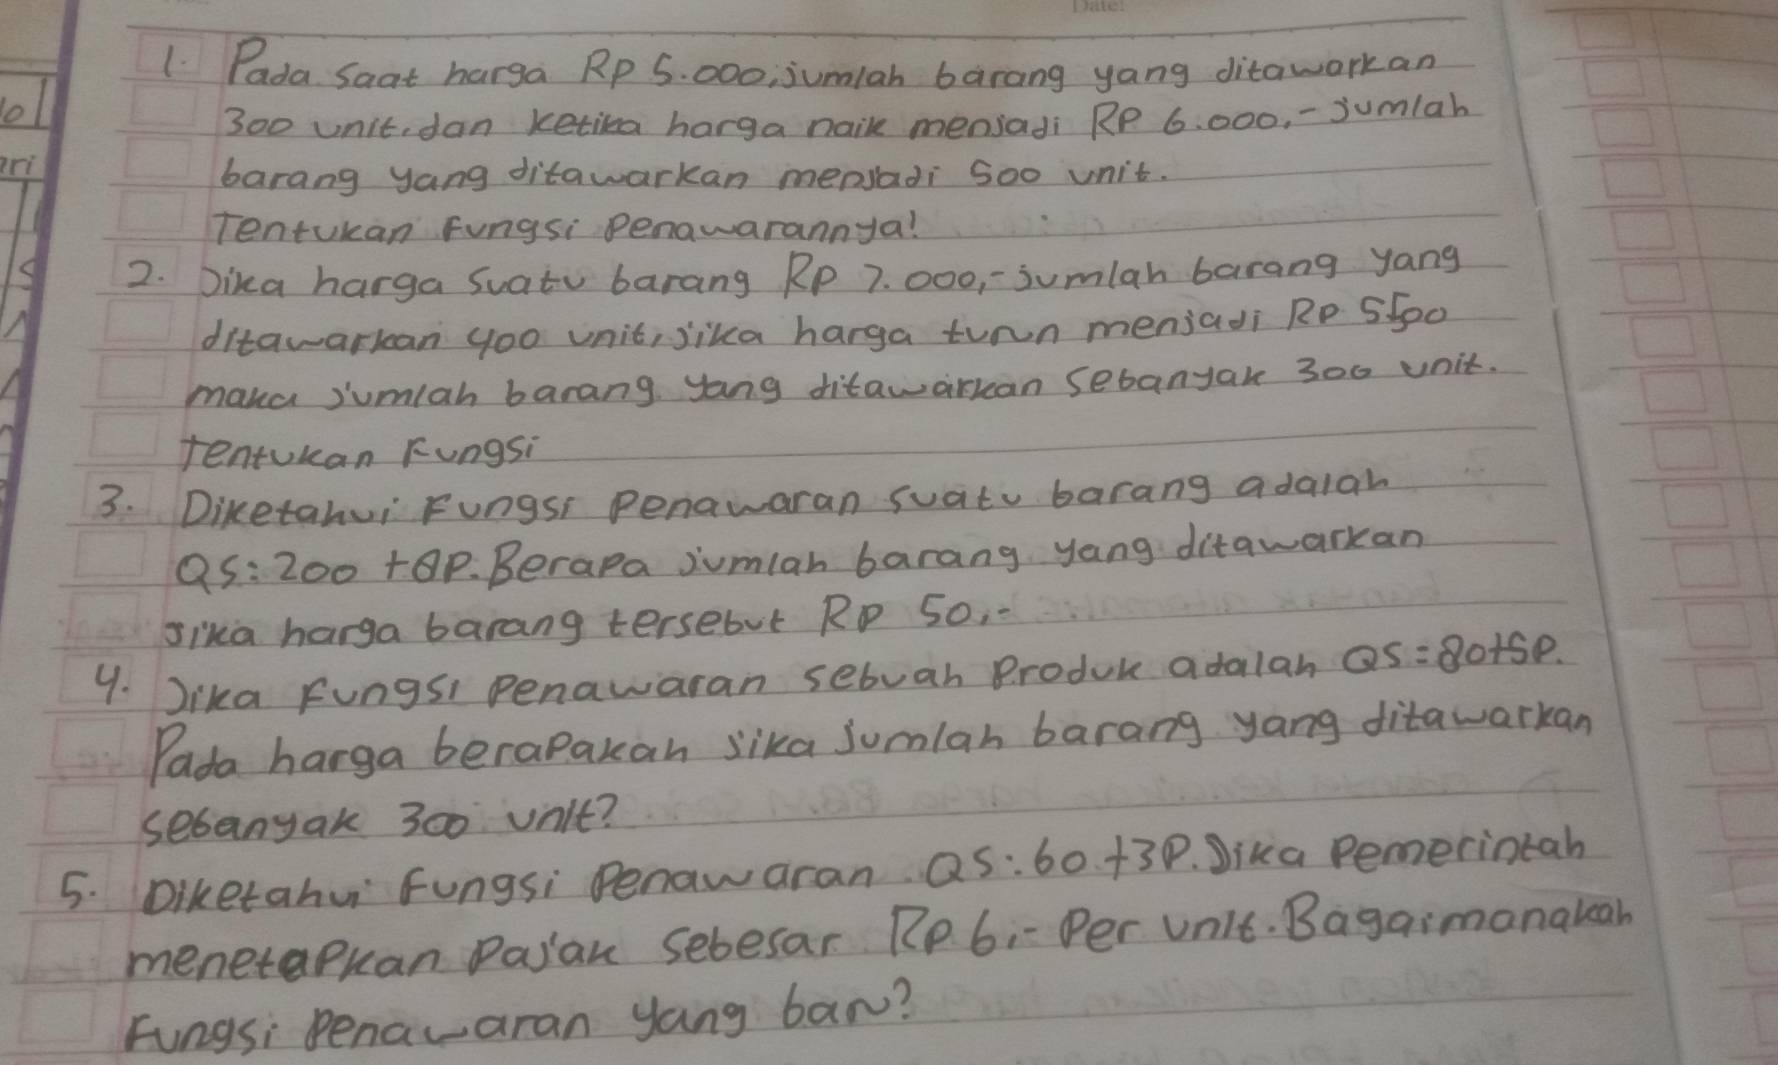 Date:
1. Pada saat harga Rp 5.000, jumlah barang yang ditawarkan
300 unit. dan ketika harga naik menjadi Rp 6.000,- jumlah
barang yang ditawarkan menjadi 500 unit.
Tentukan fungsi penawarannya!
2. Jika harga suatu barang Rp 7.000,- jumlah barang yang
ditawarkan 400 unit, jika harga turun menjadi Rp 5500
maka jumlah barang yang ditawarkan sebanyak 300 unit.
Tentukan Fungsi
3. Diketahui Fungsi Penawaran suatu barang adalah
QS: 200 + 8P. Berapa jumlah barang yang ditawarkan
jika harga barang tersebut Rp 50,-
4. Jika Fungsi Penawaran sebuah Produk adalah QS = 80+5P.
Pada harga berapakah jika jumlah barang yang ditawarkan
sebanyak 300 unit?
5. Diketahui fungsi Penawaran. QS: 60 + 3P. Jika Pemerintah
menetapkan Pajak sebesar Rp 6,- Per unit. Bagaimanakah
Fungsi Penawaran yang baru?